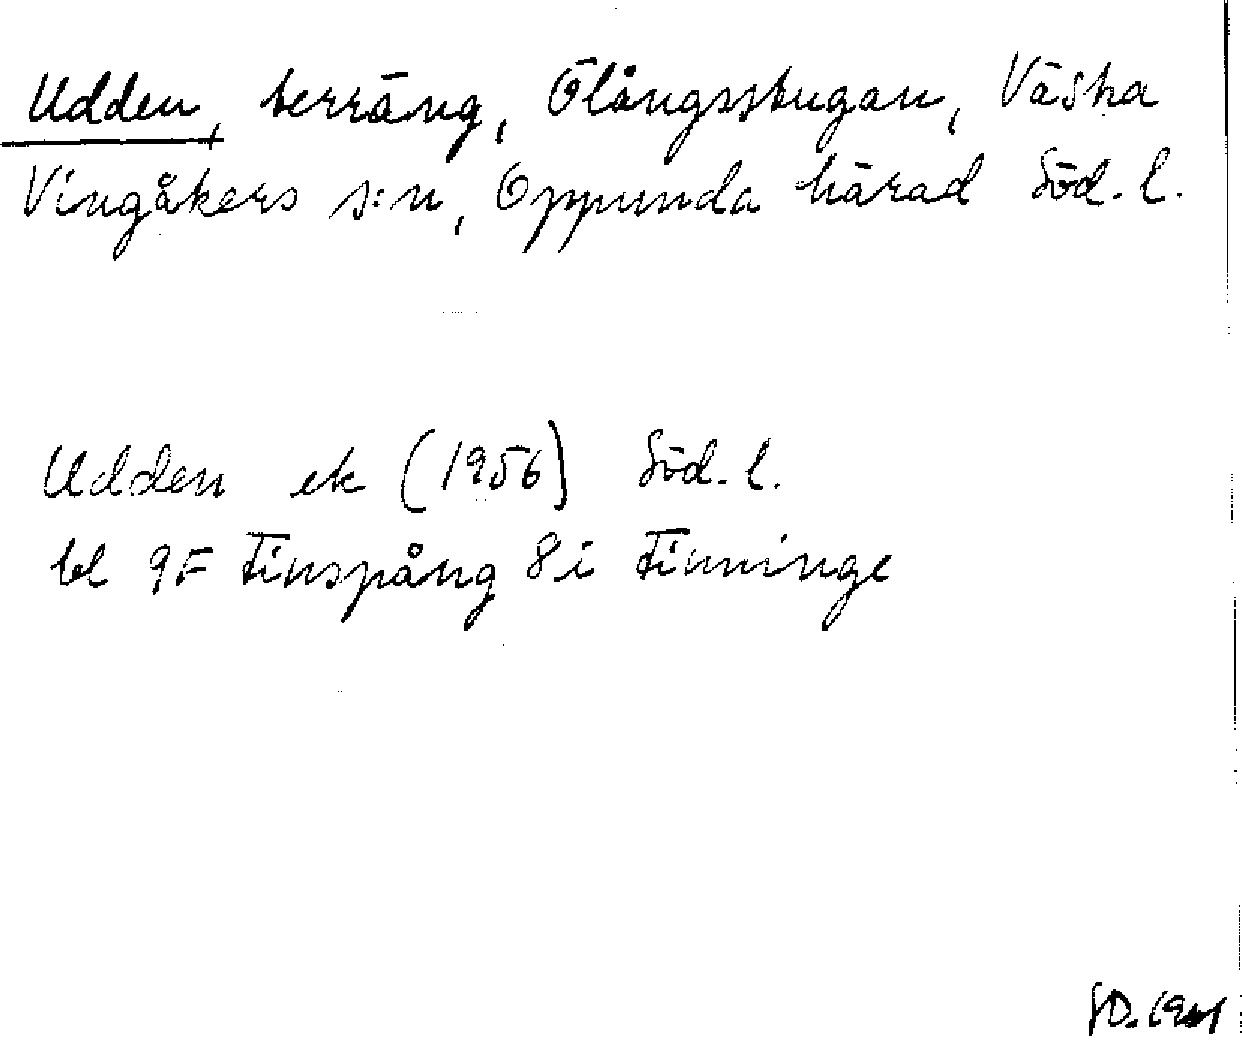 Udden, terräng, Ölångsstugan, Västra
Vingåkers s:n, Oppunda härad Söd. l.
Udden ek (1956) Söd. l.
bl 9F Finspång 8i Finninge